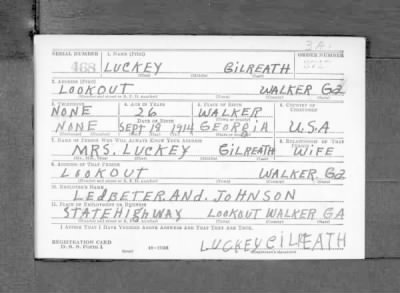 3A.
SERIAL NUMBER 1. NAME (Print) ORDER NUMBER
468 LUCKEY GILREATH
(First) (Middle) (Last)
2. ADDRESS (Print)
LOOKOUT WALKER Ga
(Number and street or R. F. D. number) (Town) (County) (State)
3. TELEPHONE 4. AGE IN YEARS 5. PLACE OF BIRTH 6. COUNTRY OF CITIZENSHIP
NONE 26 WALKER
DATE OF BIRTH
NONE SEPT 19 1914 GEORGIA U.S.A
7. NAME OF PERSON WHO WILL ALWAYS KNOW YOUR ADDRESS 8. RELATIONSHIP OF THAT PERSON
MRS. LUCKEY GILREATH WIFE
(Mr., Mrs., Miss) (First) (Middle) (Last)
9. ADDRESS OF THAT PERSON
LOOKOUT WALKER Ga
(Number and street or R. F. D. number) (Town) (County) (State)
10. EMPLOYER'S NAME
LEDBETER. AND. JOHNSON
11. PLACE OF EMPLOYMENT OR BUSINESS
STATE HIGHWAY LOOKOUT WALKER GA
(Number and street or R. F. D. number) (Town) (County) (State)
I AFFIRM THAT I HAVE VERIFIED ABOVE ANSWERS AND THAT THEY ARE TRUE.
REGISTRATION CARD
D. S. S. Form 1 LUCKEY GILREATH
(Registrant's signature)